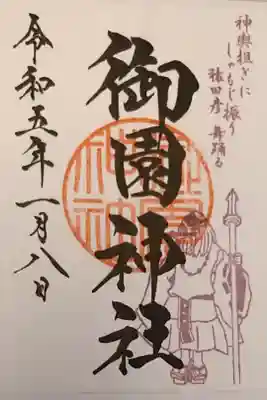 神輿担ぎに
しゃもじ振り
猿田彦 舞踊る
御園神社
令和五年一月八日